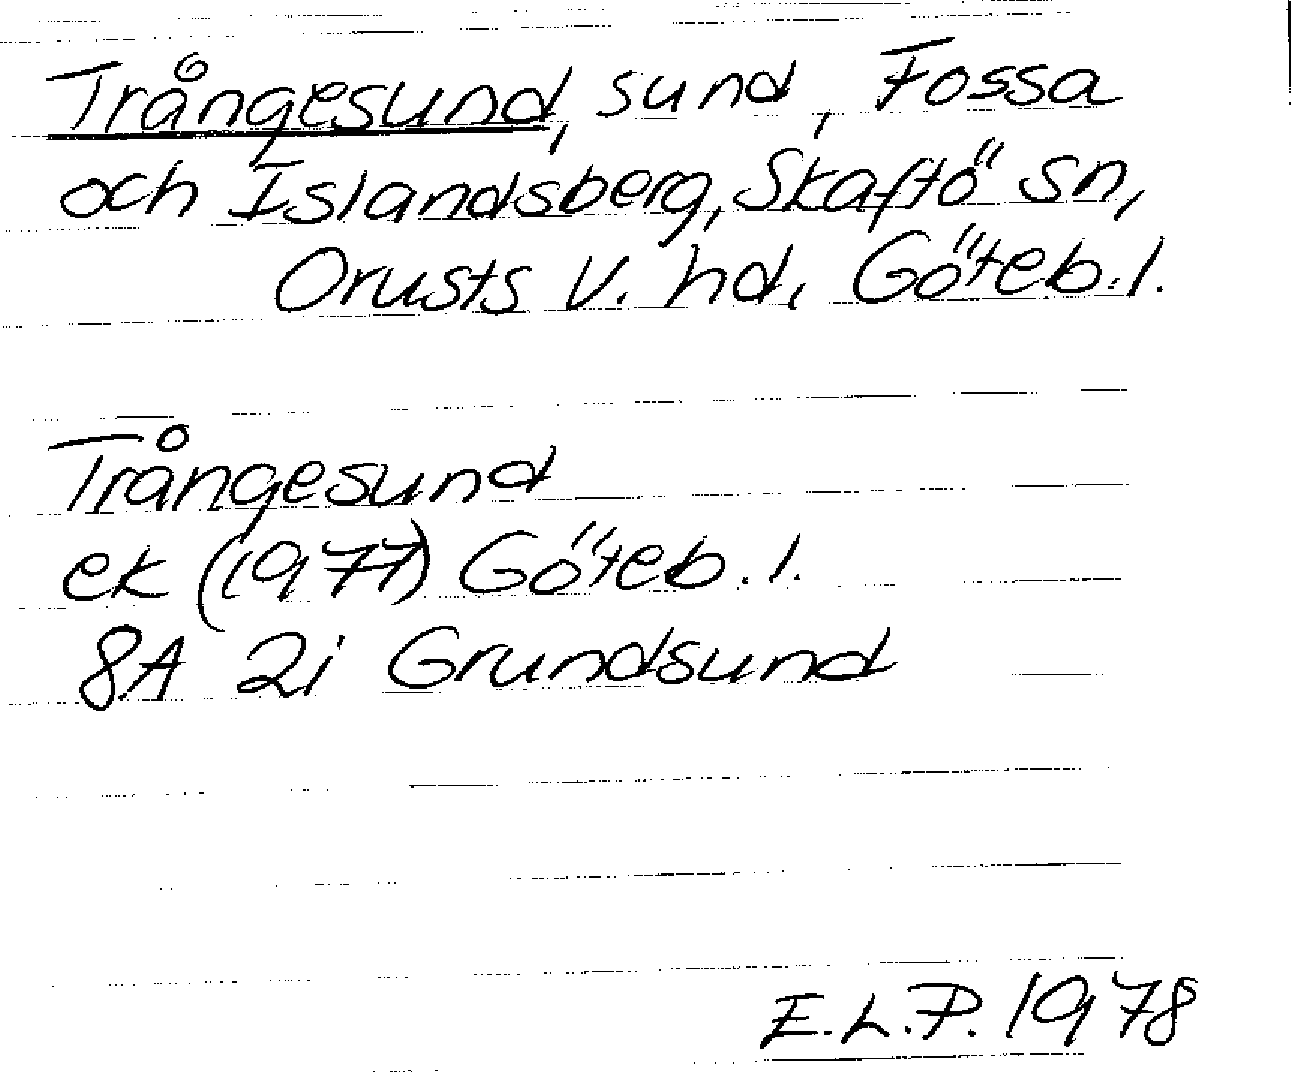 Trångesund, sund, Fossa
och Islandsberg, Skaftö sn,
Orusts V. hd, Göteb. l.
Trångesund
ek (1977) Göteb. l.
8A 2i Grundsund
E.L.P. 1978